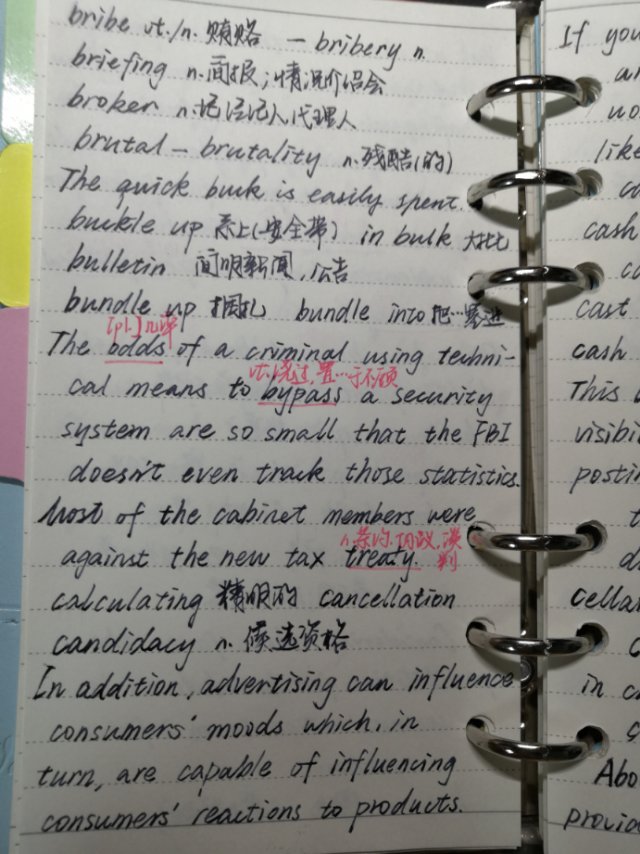 bribe vt./n. 贿赂 — bribery n.
briefing n. 简报；情况介绍会
broker n. 经纪人，代理人
brutal — brutality n. 残酷(的)
The quick buck is easily spent.
buckle up 系上(安全带) in bulk 大批
bulletin 简明新闻，公告
bundle up 捆扎 bundle into 把…塞进
[pl.] 几率
The odds of a criminal using techni-
vt. 绕过，置…于不顾
cal means to bypass a security
system are so small that the FBI
doesn't even track those statistics.
Most of the cabinet members were
n. 条约，协议，谈判
against the new tax treaty.
calculating 精明的 cancellation
candidacy n. 候选资格
In addition, advertising can influence
consumers' moods which, in
turn, are capable of influencing
consumers' reactions to products.
If you
like
cash
cast
cash
This
visibi
postin
cella
in c
Abo
provid